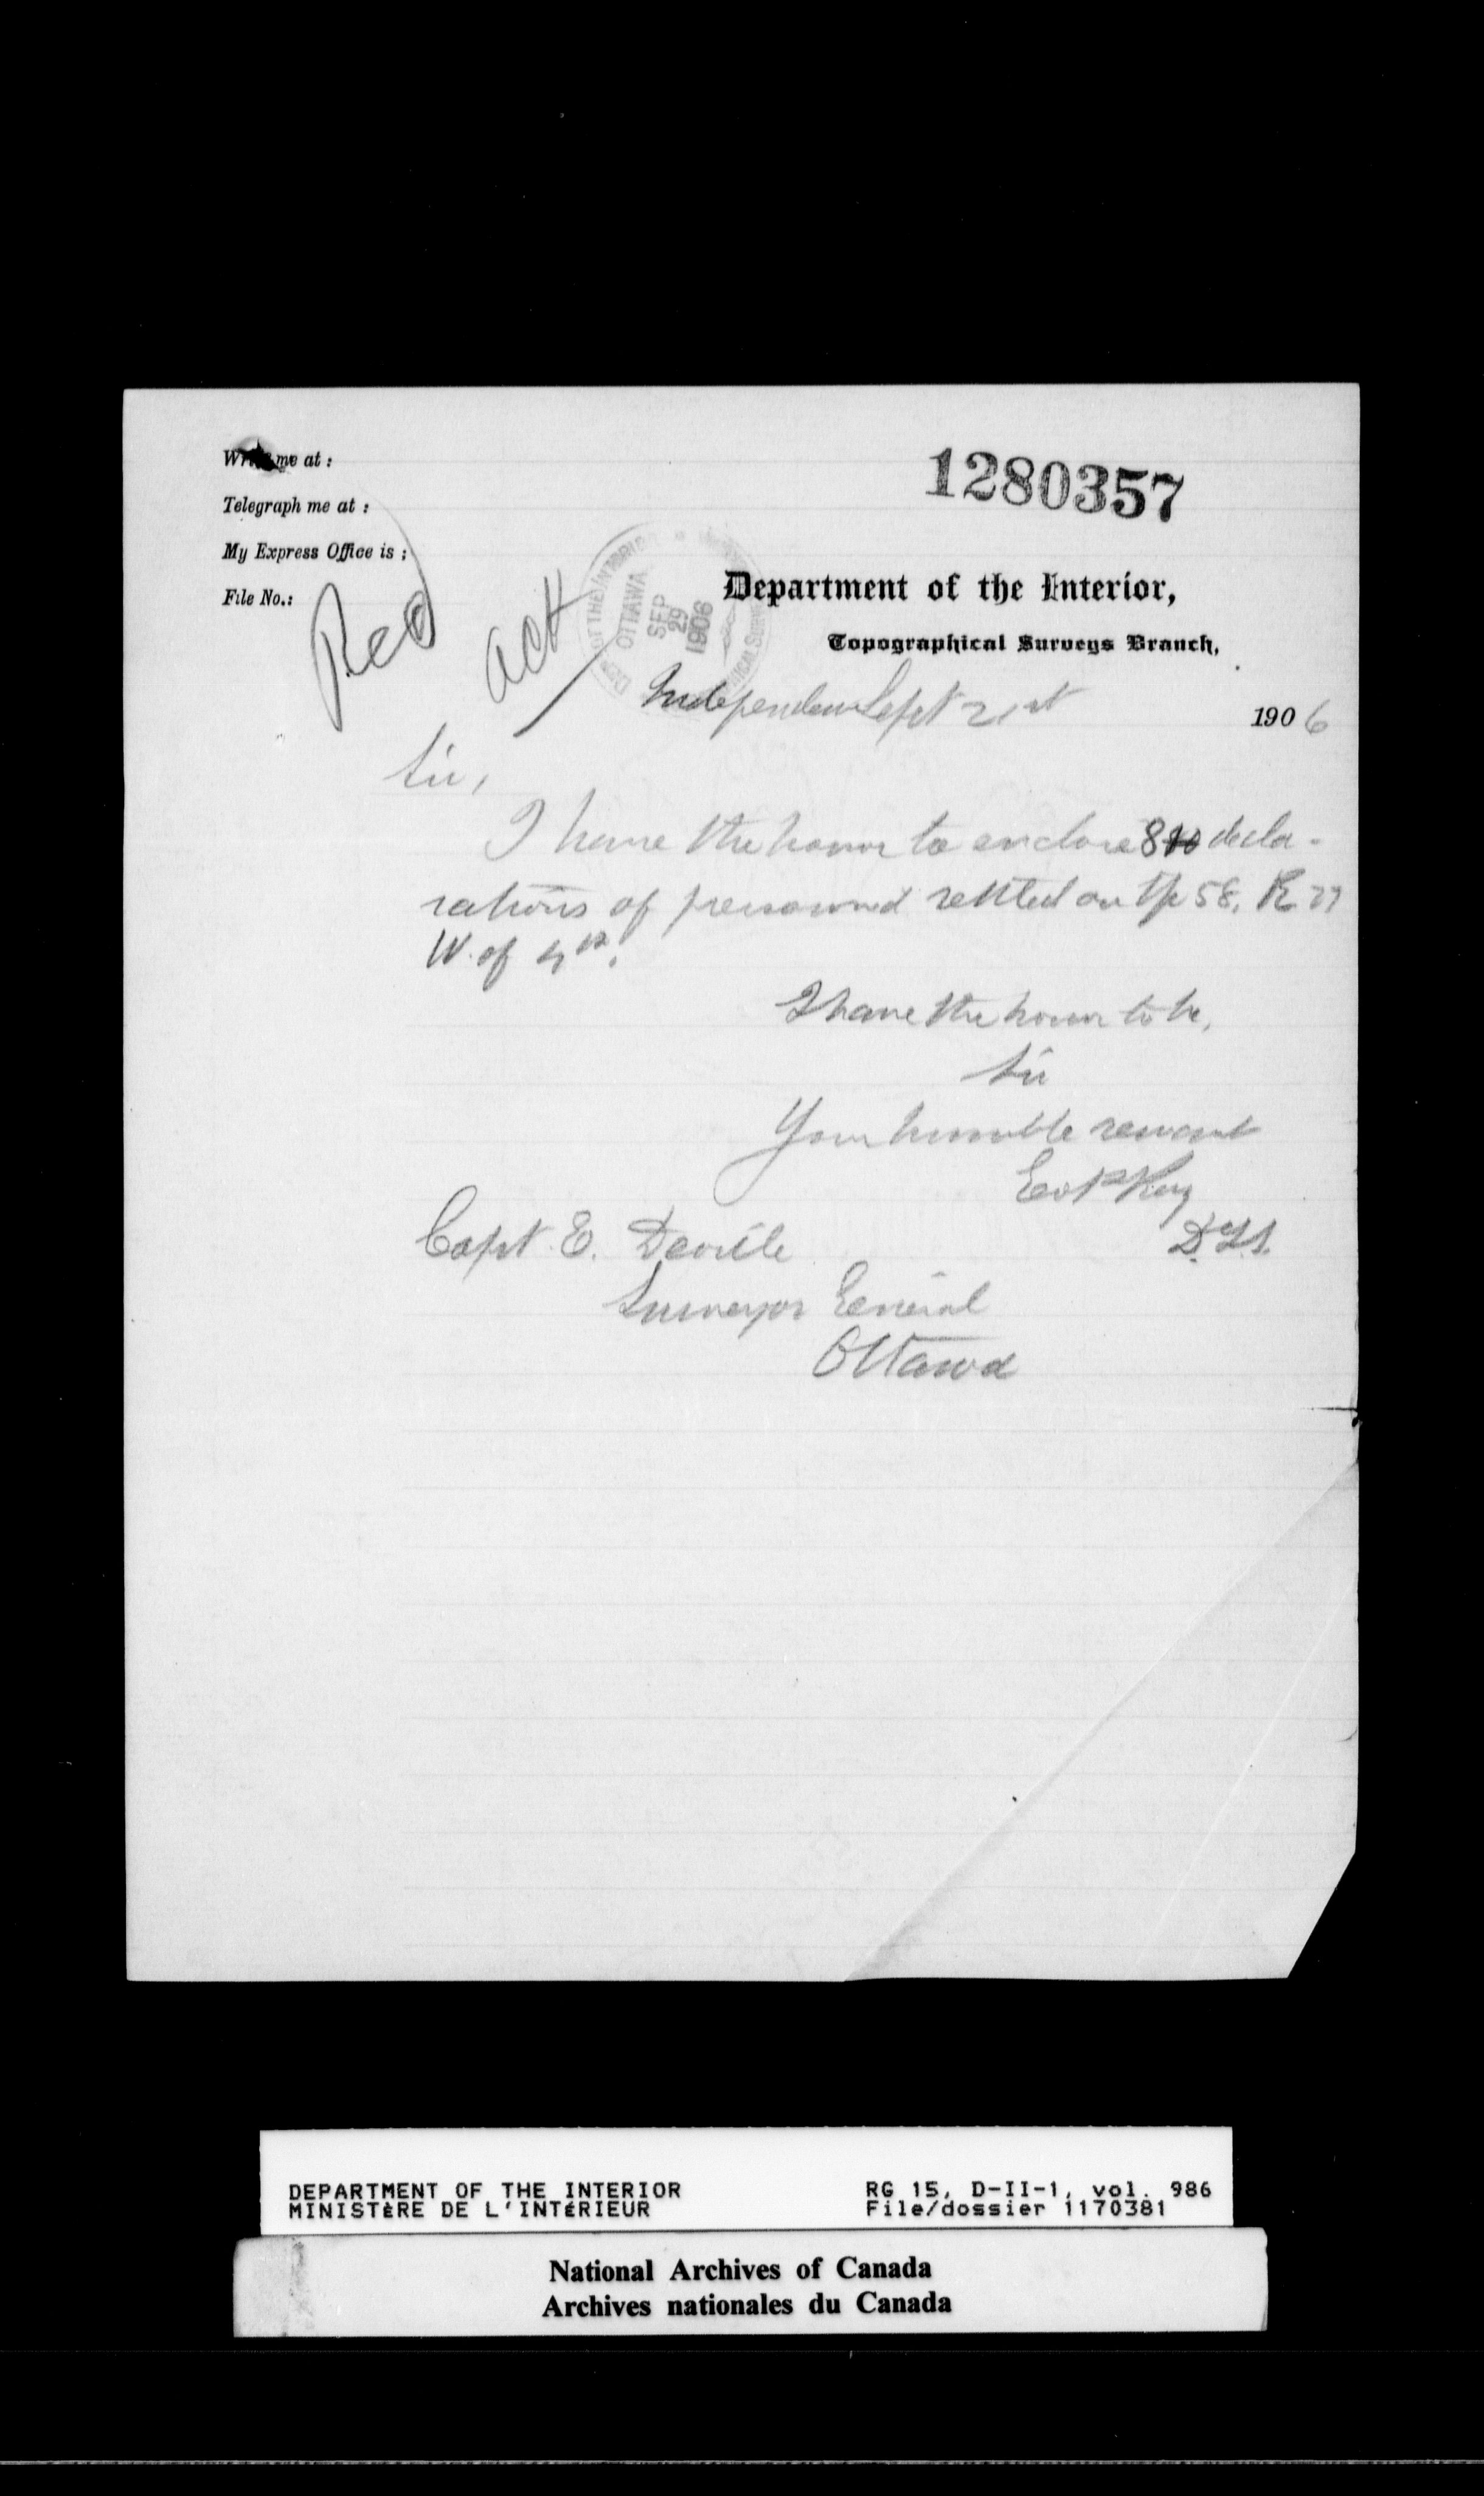 Write me at :
Telegraph me at :
My Express Office is :
File No.:
1280357
Rec
ack
DEPT OF THE INTERIOR
OTTAWA
SEP
29
1906
Department of the Interior,
Topographical Surveys Branch,
Sept 21st 1906
Sir,
I have the honor to enclose 8 decla-
rations of persons settled on Tp 58, R
W. of 4th.
I have the honor to be,
Sir
Your humble servant
D.L.S.
Capt. E. Deville
Surveyor General
Ottawa
DEPARTMENT OF THE INTERIOR
MINISTÈRE DE L'INTÉRIEUR
RG 15, D-II-1, vol. 986
File/dossier 1170381
National Archives of Canada
Archives nationales du Canada